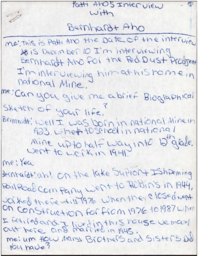 Patti Aho's Interview
with
Bernhardt Aho
me: This is Patti Aho the date of the interview
is December 10 I'm interviewing
Bernhardt Aho for the Red Dust Project
I'm interviewing him at his home in
National Mine.
me: Can you give me a brief Biographical
Sketch of your life?
Bernhardt: Well I was born in National Mine in
I in National
Mine up to half way into 10th grade.
went to work in
me: Yea
Bernhardt: Uh! on the Lake Superior & Ishpeming
Rail Road Company went to in 1944,
worked there 1976 when they
on construction for from 1976 to 1987 when
I retired and I lived in this house we
out here and married in
me: um How many Brothers and Sisters Do
You have?